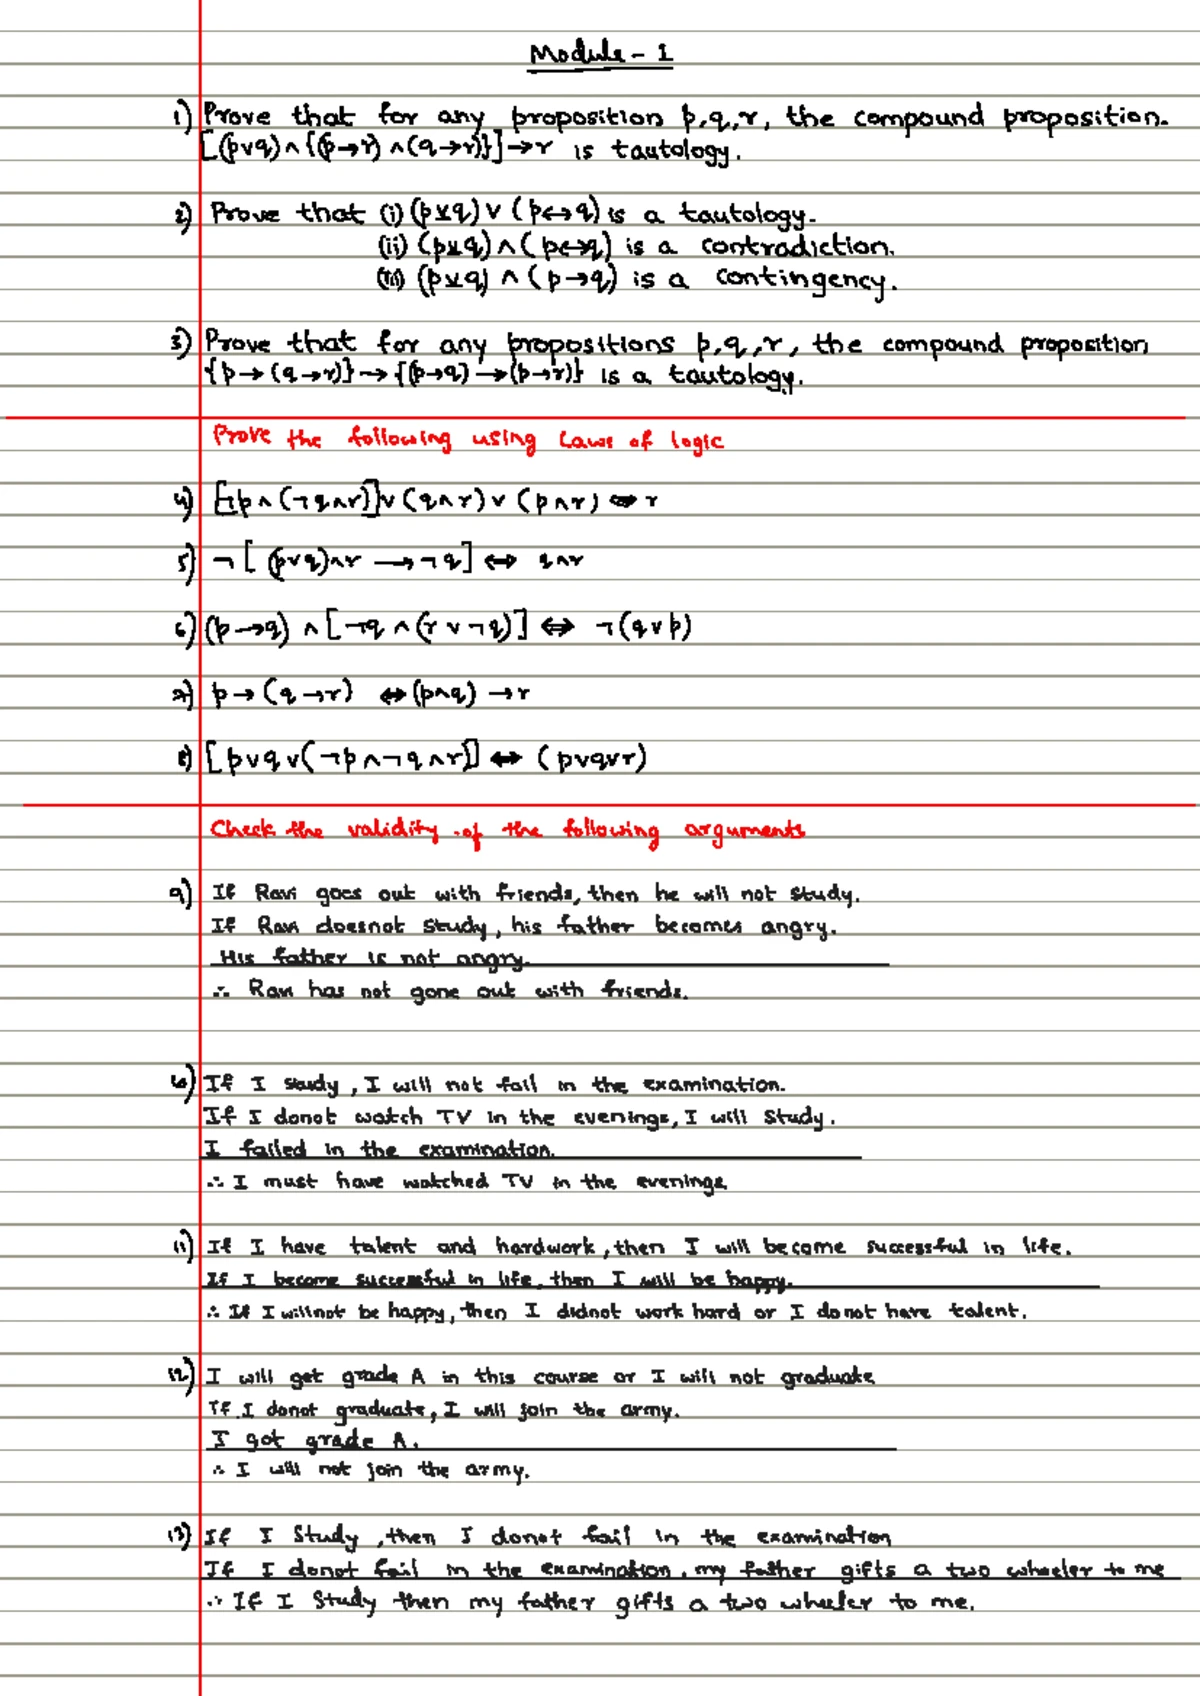 Module - 1
1) Prove that for any proposition p,q,r, the compound proposition.
[(p∨q)∧{(p→r)∧(q→r)}]→r is tautology.
2) Prove that (i) (p⊻q)∨(p↔q) is a tautology.
(ii) (p⊻q)∧(p↔q) is a contradiction.
(iii) (p⊻q)∧(p→q) is a contingency.
3) Prove that for any propositions p,q,r, the compound proposition
{p→(q→r)}→{(p→q)→(p→r)} is a tautology.
Prove the following using Laws of logic
4) [¬p∧(¬q∧r)]∨(q∧r)∨(p∧r)⇔r
5) ¬[(p∨q)∧r→¬q]⇔q∧r
6) (p→q)∧[¬q∧(r∨¬q)]⇔¬(q∨p)
7) p→(q→r)⇔(p∧q)→r
8) [p∨q∨(¬p∧¬q∧r)]⇔(p∨q∨r)
Check the validity of the following arguments
9) If Ravi goes out with friends, then he will not study.
If Ravi doesnot study, his father becomes angry.
His father is not angry.
∴ Ravi has not gone out with friends.
10) If I study, I will not fail in the examination.
If I donot watch TV in the evenings, I will study.
I failed in the examination.
∴ I must have watched TV in the evenings
11) If I have talent and hardwork, then I will become successful in life.
If I become successful in life, then I will be happy.
∴ If I willnot be happy, then I didnot work hard or I donot have talent.
12) I will get grade A in this course or I will not graduate
If I donot graduate, I will join the army.
I got grade A.
∴ I will not join the army.
13) If I Study, then I donot fail in the examination
If I donot fail in the examination, my father gifts a two wheeler to me
∴ If I Study then my father gifts a two wheeler to me.